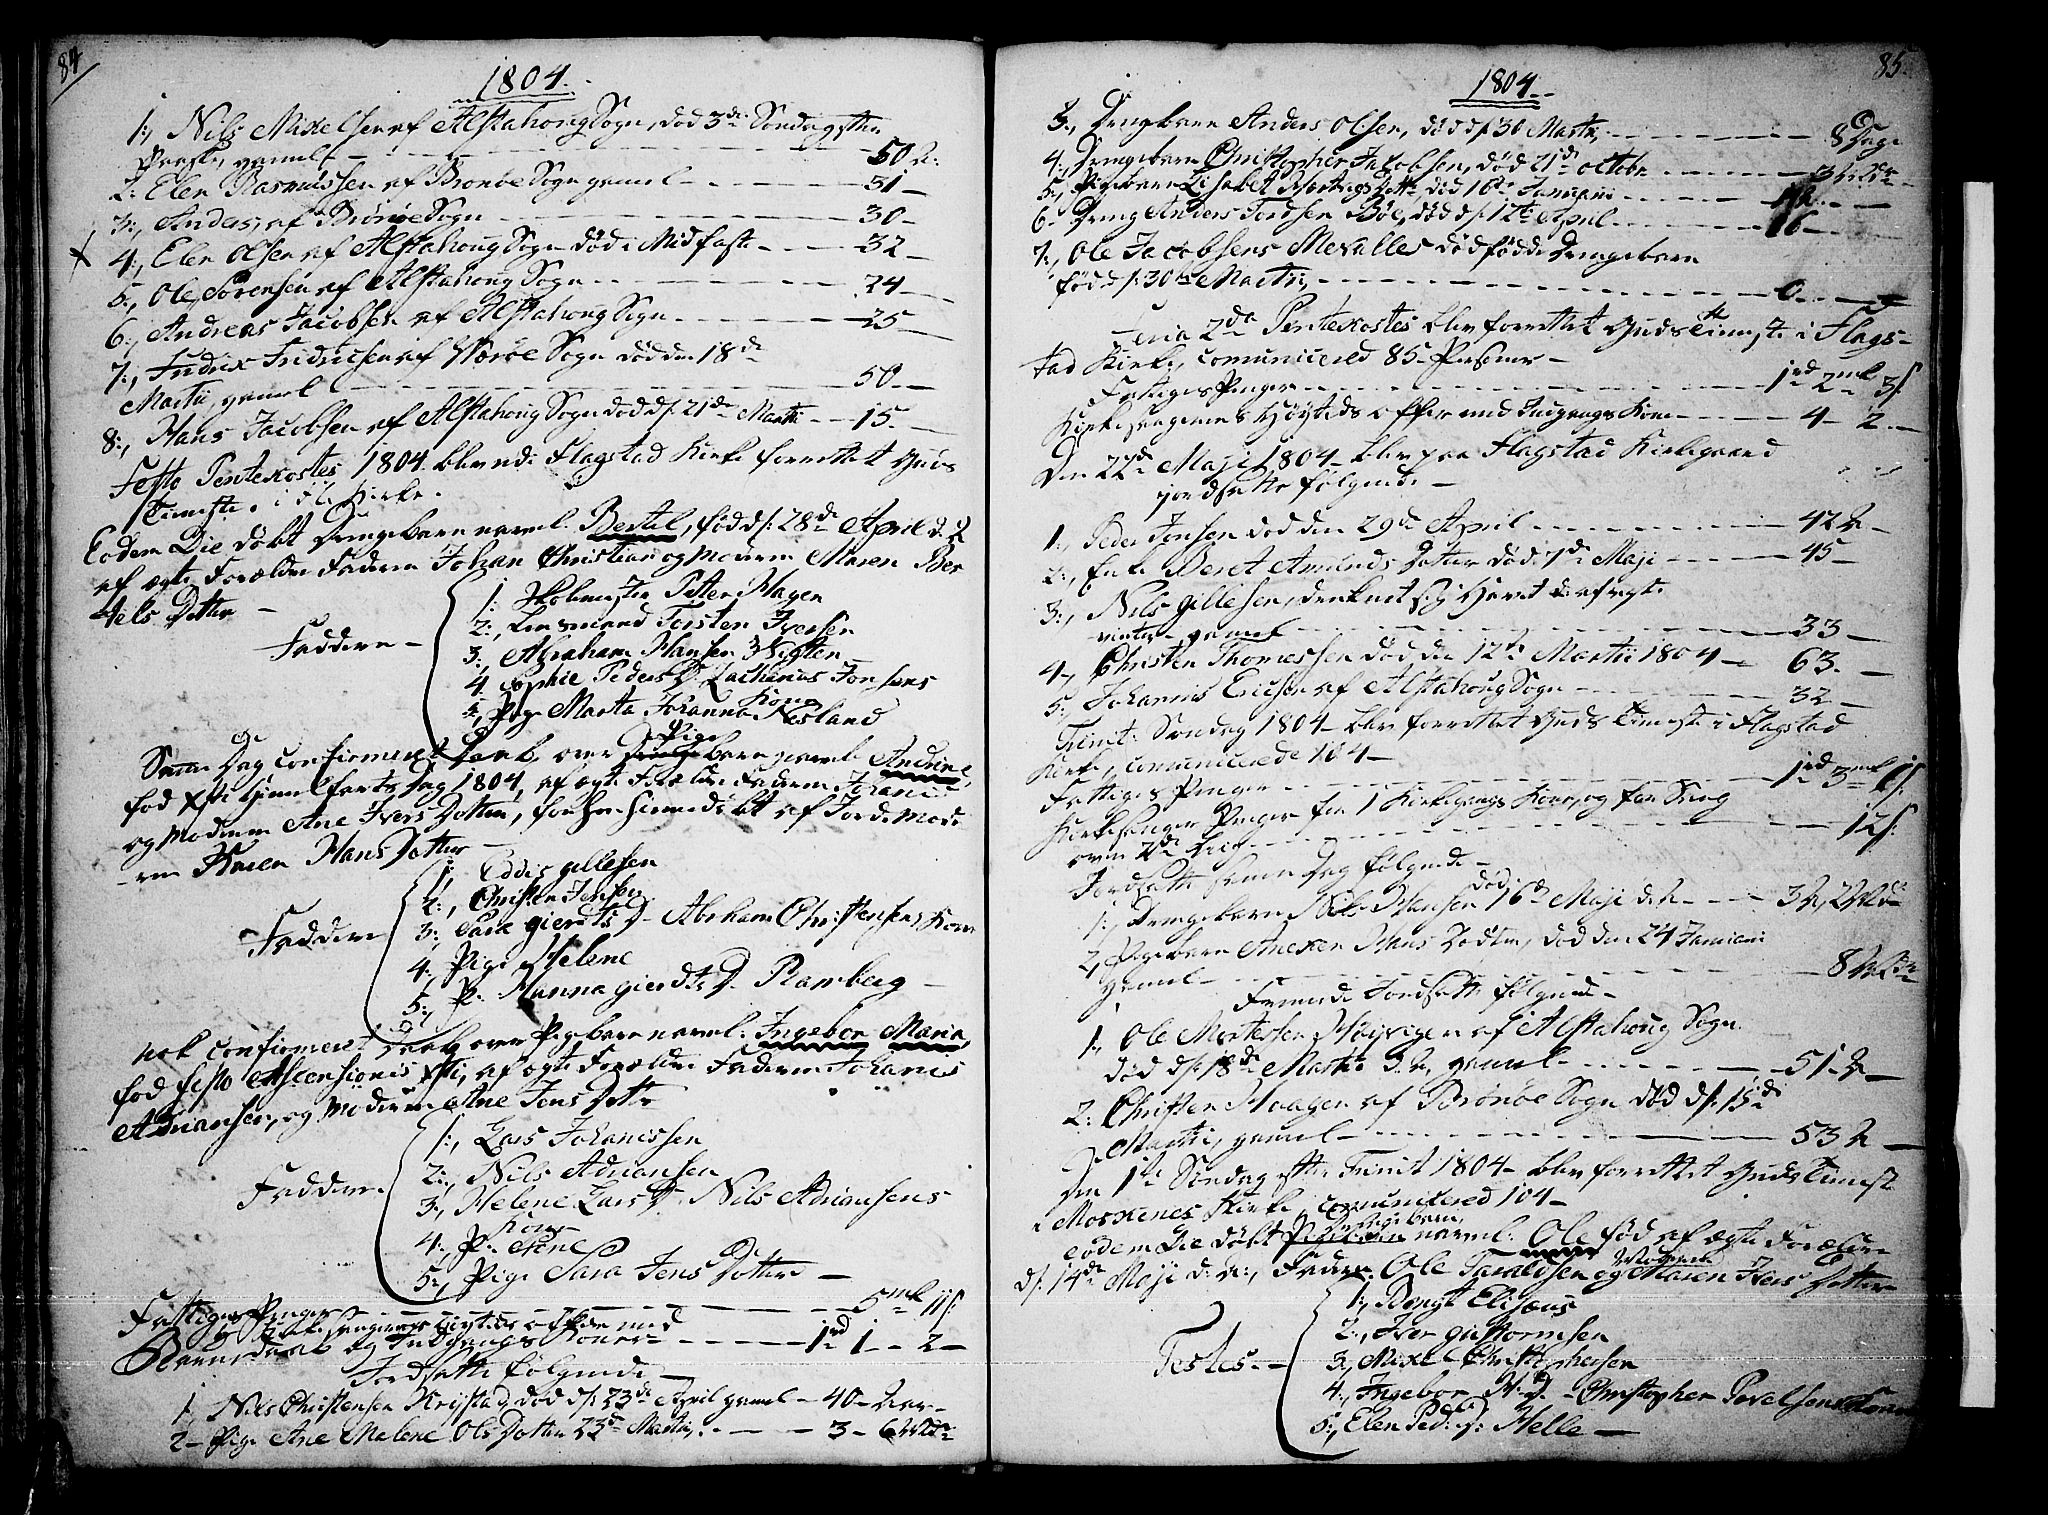 84
1804.
1., Nils Mikelsen af Alstahoug Sogn, død 3de Søndag efter
Paaske, gamel 50 A:
2: Elen Rasmussen af Brønøe Sogn gamel 31
3., Anders, af Brønøe Sogn 30
4., Elen Olsen af Alstahoug Sogn død i Midfaste 32
5., Ole Sørensen af Alstahoug Sogn 24
6., Andreas Jacobsen af Alstahoug Sogn 25
7., Fridrix Fridrichsen af Værøe Sogn død den 18de
Martii, gamel 50
8., Hans Jacobsen af Alstahoug Sogn død d: 21de Martii 15
Festo Pentekostes 1804 blev udi Flagstad Kirke forrettet Guds
Tieniste i
Eodem Die døbt Drengebarn navnl. Bertel, fød d: 28de April d. A
af ægte Forældre Faderen Johan Christian og Moderen Maren Ber
tels Dotter
Faddere
1: Skolmester Petter Hagen
2., Lensmand Torsten Iversen
3., Abraham Hansen Wigten
4. Sophie Peders D. Zacharias Jonsens
Kone
5., Pige Marta Johanna Nesland
Samme Dag confirmeret Daab over Pige barn navnl. Andrine,
fød Xsti Himmelfarts Dag 1804, af ægte Forældre Faderen Johanis
og Moderen Ane Ivers Dotter, forhen hiemmedøbt af Jordemode
ren Karen Hans Dotter
Faddere
1, Eddis Gillesen
2., Christen Jensen
3., Sara Gierdts D. Abraham Christensens Kone
4., Pige Helene
5., P. Hanna Gierdts D. Ramberg
nok confirmeret Daab over Pigebarn navnl: Ingebor Maria,
fød Festo Ascensionis Xsti, af ægte Forældre Faderen Johanis
Adriansen, og Moderen Ane Jens Dotter
Faddere
1., Lars Johanissen
2., Nils Adriansen
3, Helene Lars D. Nils Adriansens
Kone
4., P. Ane
5., Pige Sara Jens Dotter
Fattiges Penge 5mk 11s:
Kirkesangerens Høytids offer med
Barnedaab og Indgangs Koner 1rd 1 2
Jordsatte følgende
1 Nils Christensen Krystad, død d: 23de April gamel 40 Aar
2 Pige Ane Malene Ols Dotter 23de Martii 3 6
85.
1804
3., Drengebarn Anders Olsen, død d: 30 Martii 8 Dage
4., Drengebarn Christopher Jacobsen, død 21de octobr
5., Pigebarn Lisabet Dotter død 16de Januarii
6 Dreng Anders Tordsen Bøe, død d: 12te April 16
7., Ole Jacobsens Mevalles dødfødde Drengebarn
fød d: 30te Martii 0
Feria 2da Pentekostes blev forrettet Guds Tieniste i Flags-
tad Kirke, comunicered 85 Personer
Fattiges Penge 1rd 2mk 3s
Kirkesangerens Høytids offer med Indgangs Kone 4 2
Den 22de Maji 1804 blev paa Flagstad Kirkegaard
jordsatte følgende
1., Peder Jonsen død den 29de April 42 A
2., Enke Beret Amunds Dotter død 7de Maji 45
3., Nils Gillesen, druknet paa Havet denafvigte
vinter gamel 33
4, Christen Thomessen død den 12te Martii 1804 63
5: Johannis Ericsen af Alstahoug Sogn 32
Trinit: Søndag 1804 blev forrettet Guds Tieniste i Flagstad
Kirke, comunicerede 104
Fattiges Penge 1rd 3mk 1s:
Kirkesanger Penge for 1 Kirkegangs Kone, og for Sang
over 2de Liig 12s:
Jordsatte samme Dag følgende
1., Drengebarn Nils Hansen død 16de Maji d. A 3
2, Pigebarn Anexen Hans Dotter, død den 24 Januarii
gamel 8
Fremmede Jordsatte følgende
1., Ole Mortessen af Alstahoug Sogn
død d: 18de Martii d. A, gamel 51 A
2: Christen Haagen af Brønøe Sogn død d: 15de
Martii, gamel 53 A
Den 1te Søndag efter Trinit 1804 blev forrettet Guds Tieniste
i Moskenes Kirke, comunicered 104
eodem Die døbt Drengebarn navnl. Ole fød af ægte Forældre
d: 14de Maji d: A:, Fader Ole Taraldsen og Moderen Maren Ivers Dotter
Testes
1., Bengt Elisæus
2., Iver Guttormsen
3., Mikel Christophersen
4., Ingebor H. D. Christopher Povelsens Kone
5., Elen Peds D: Helle